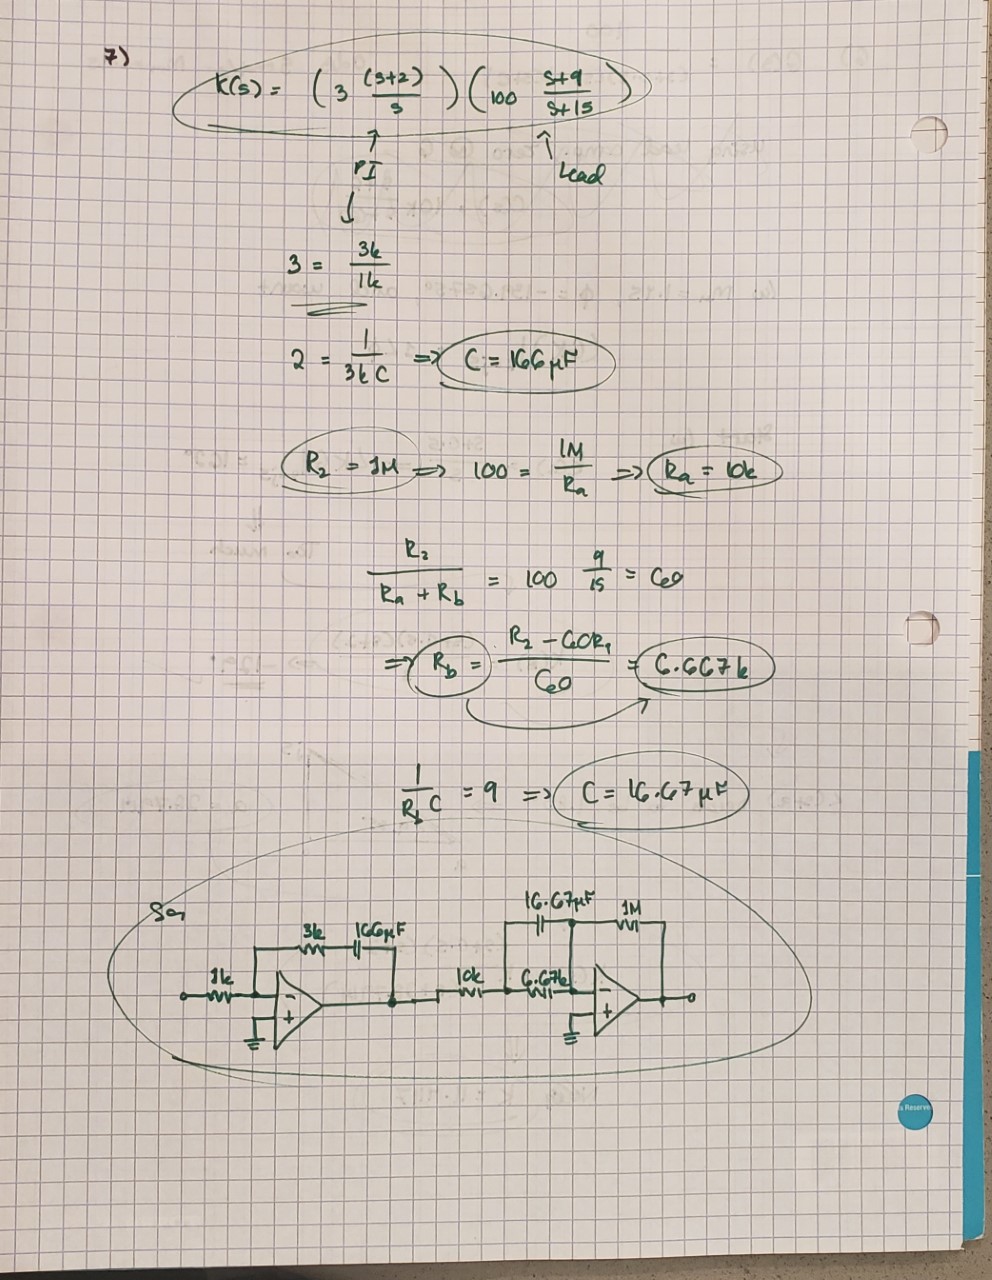 7)
K(s) = (3 (s+2)/s) (100 (s+9)/(s+15))
↑ ↑
PI Lead
↓
3 = 3k/1k
2 = 1/(3k C) => C = 166μF
R2 = 1M => 100 = 1M/Ra => Ra = 10k
R2/(Ra + Rb) = 100 9/15 = 60
=> Rb = (R2 - 60R1)/60 = 6.667k
1/(Rb C) = 9 => C = 16.67μF
So,
16.67μF 1M
3k 166μF
1k 10k 6.67k
- -
+ +
s Reserve